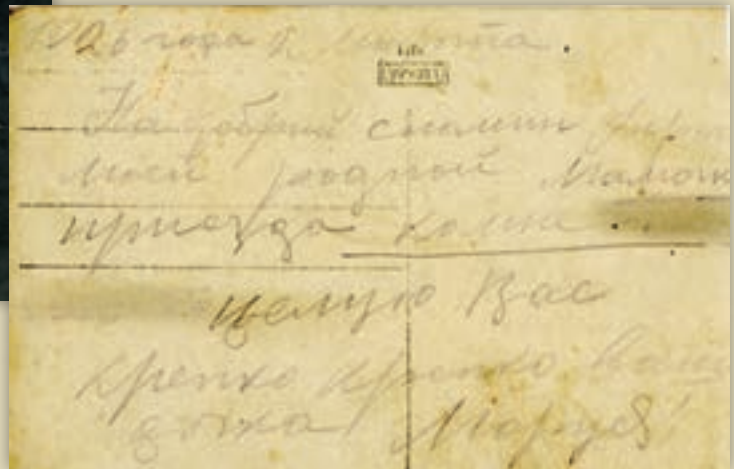 1926 года 8 марта.
На добрий спомин
моей родной Мамочк
приезда
целую Вас
крепко крепко Ваша
дочка Маруся!